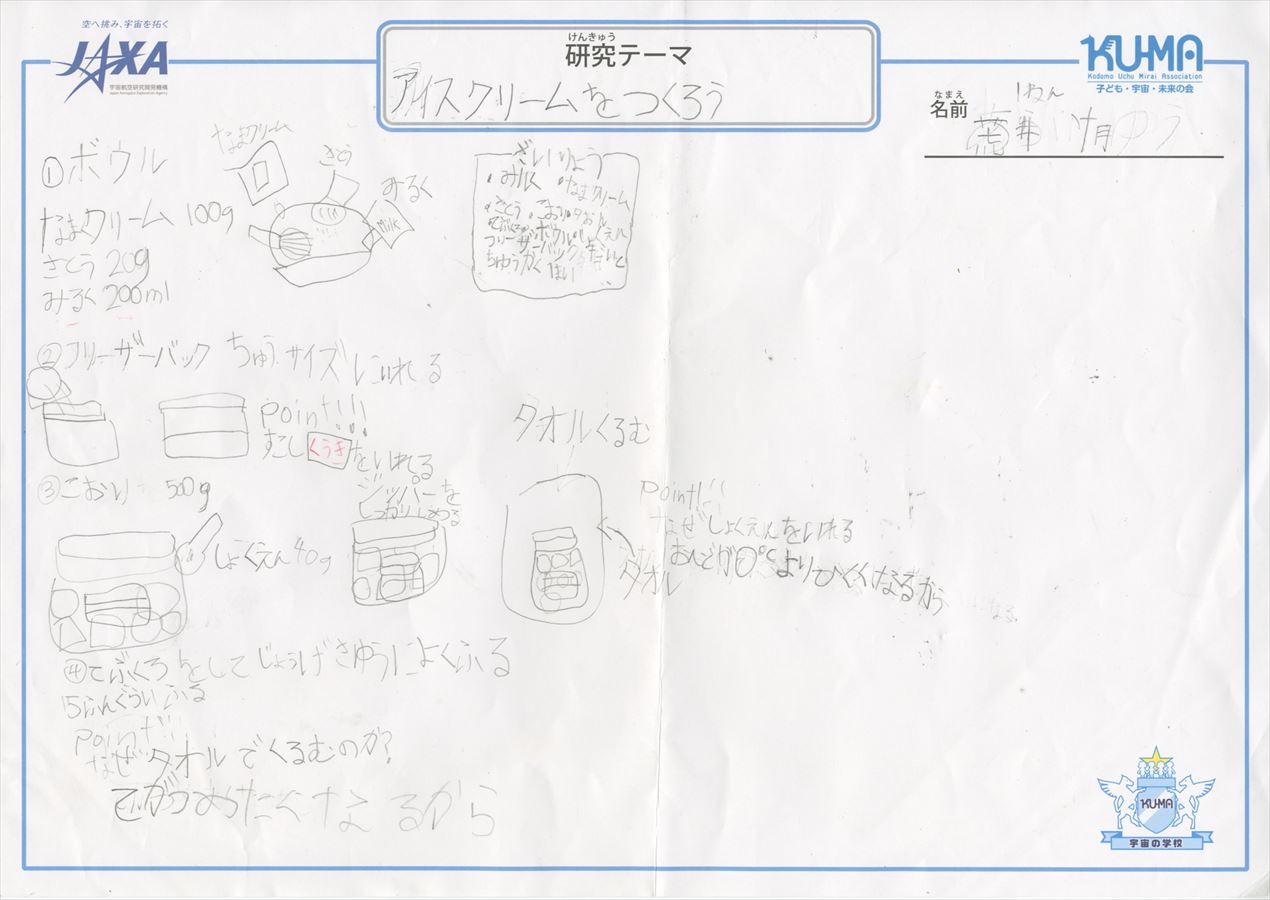 空へ挑み、宇宙を拓く
JAXA
宇宙航空研究開発機構
Japan Aerospace Exploration Agency
けんきゅう
研究テーマ
アイスクリームをつくろう
KU-MA
Kodomo Uchu Mirai Association
子ども・宇宙・未来の会
なまえ
名前
1ねん
①ボウル
なまクリーム 100g
さとう 20g
みるく 200ml
なまクリーム
さとう
みるく
Milk
ざいりょう
・みルく ・なまクリーム
・さとう ・こおり・タおル
ボウル
フリーザーバック
②フリーザーバック ちゅうサイズにいれる
Point!!!
すこしくうきをいれる
③こおり 500g
しょくえん40g
ジッパーを
しっかりしめる
タオルくるむ
タオル
Point!!
なぜしょくえんをいれる
おんどが0℃よりひくくなるから
④てぶくろをしてじょうげさゆうによくふる
15ふんぐらいふる
Point!!
なぜタオルでくるむのか?
てがつめたくなるから
KUMA
宇宙の学校